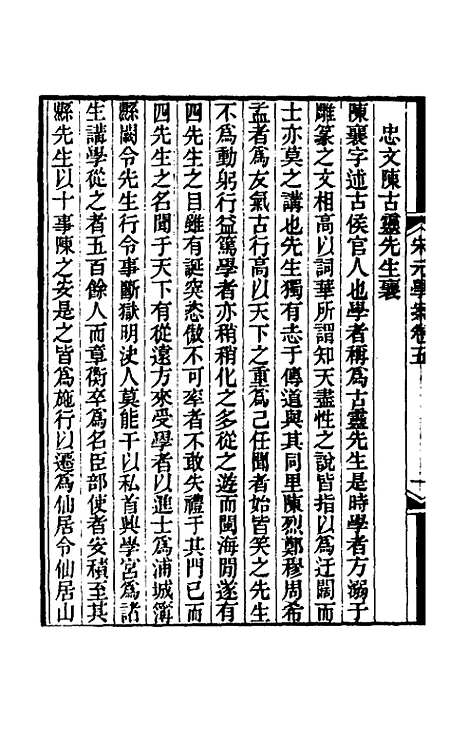 宋元學案卷五
忠文陳古靈先生襄
陳襄字述古侯官人也學者稱爲古靈先生是時學者方溺于
雕篆之文相高以詞華所謂知天盡性之說皆指以爲迂闊而
士亦莫之講也先生獨有志于傳道與其同里陳烈鄭穆周希
孟者爲友氣古行高以天下之重爲己任聞者始皆笑之先生
不爲動躬行益篤學者亦稍稍化之多從之遊而閩海閒遂有
四先生之目雖有誕突恣傲不可率者不敢失禮于其門已而
四先生之名聞于天下有從遠方來受學者以進士爲浦城簿
縣闕令先生行令事斷獄明決人莫能干以私首興學宮爲諸
生講學從之者五百餘人而章衡卒爲名臣部使者安積至其
縣先生以十事陳之安是之皆爲施行以遷爲仙居令仙居山